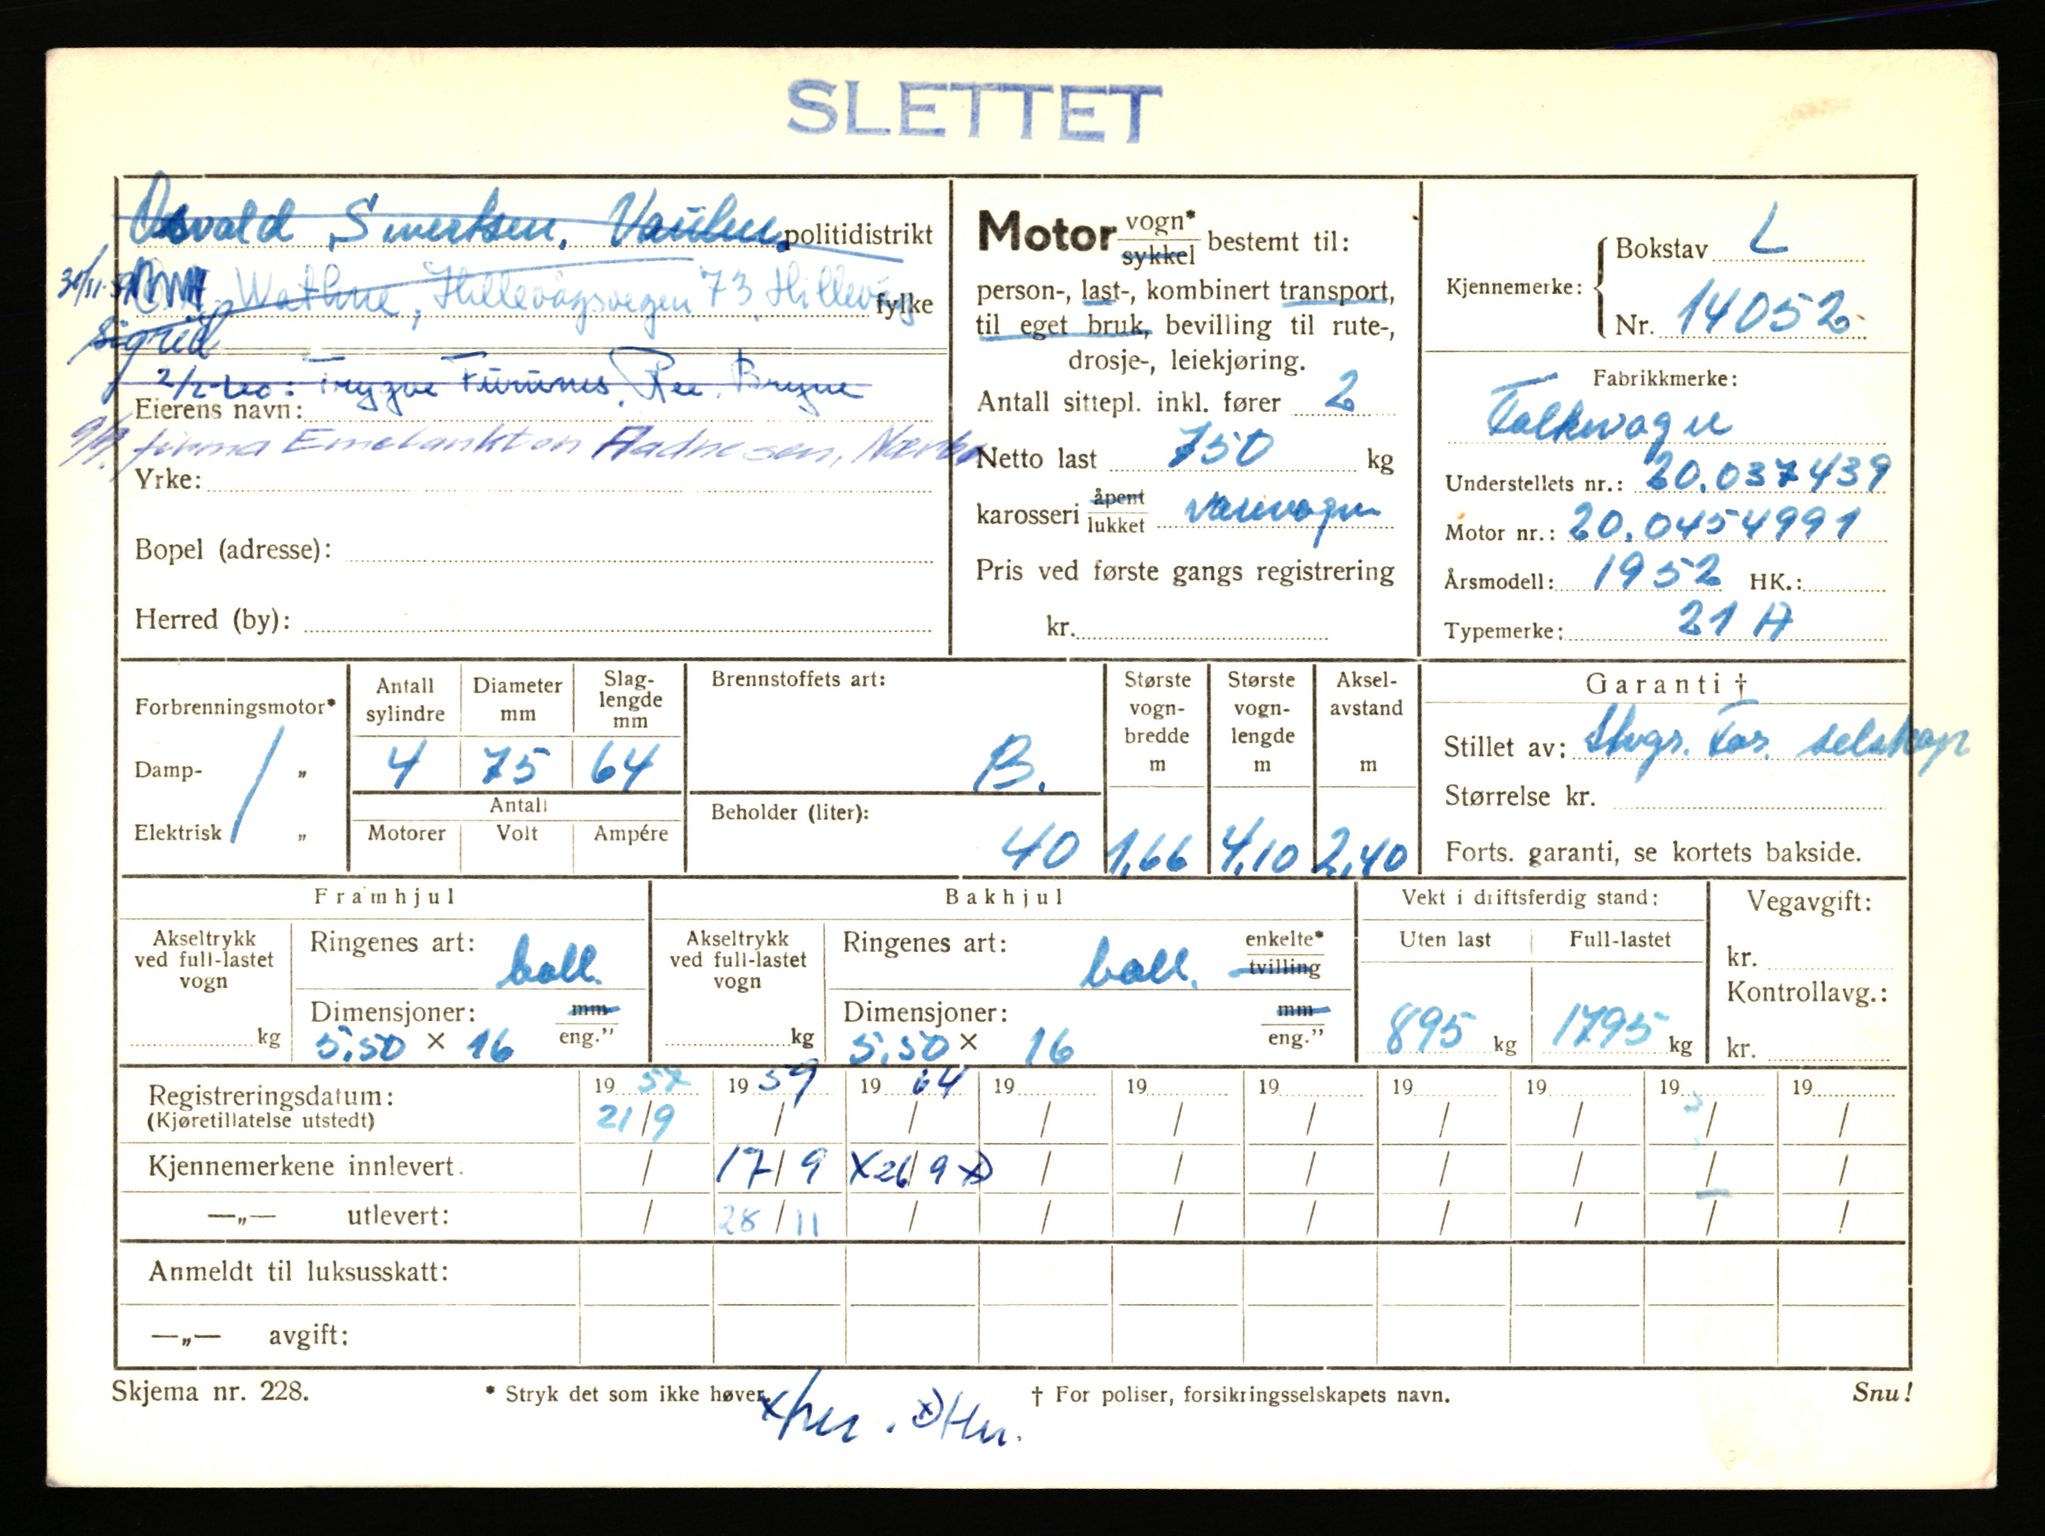 SLETTET
Osvald Sivertsen, Vaulen. politidistrikt
30/11-59 Wathne, Hillevågsvegen 73, Hillevåg fylke
Sigrid
2/2-60: Trygve Furunes, Ree, Bryne
Eierens navn:
firma Aadnesen, Nærbø
Yrke:
Bopel (adresse):
Herred (by):
Motor vogn* sykkel bestemt til:
person-, last-, kombinert transport,
til eget bruk, bevilling til rute-,
drosje-, leiekjøring.
Antall sittepl. inkl. fører 2
Netto last 750 kg
karosseri åpent lukket varevogn
Pris ved første gangs registrering
kr.
Kjennemerke: Bokstav L
Nr. 14052
Fabrikkmerke:
Folkevogn
Understellets nr.: 20.037439
Motor nr.: 20.0454991
Årsmodell: 1952 HK.:
Typemerke: 21 A
Forbrenningsmotor*
Damp- „
Elektrisk „
Antall sylindre Diameter mm Slag-lengde mm
4 75 64
Antall
Motorer Volt Ampére
Brennstoffets art:
B.
Beholder (liter):
40
Største vogn-bredde m
1,66
Største vogn-lengde m
4,10
Aksel-avstand m
2,40
Garanti †
Stillet av: Stvgr. For. selskap
Størrelse kr.
Forts. garanti, se kortets bakside.
Framhjul
Akseltrykk ved full-lastet vogn
kg
Ringenes art: ball.
Dimensjoner: mm
5.50 × 16 eng.”
Bakhjul
Akseltrykk ved full-lastet vogn
kg
Ringenes art: ball. enkelte* tvilling
Dimensjoner: mm
5.50 × 16 eng.”
Vekt i driftsferdig stand:
Uten last Full-lastet
895 kg 1795 kg
Vegavgift:
kr.
Kontrollavg.:
kr.
Registreringsdatum: 19 57 19 59 19 64 19 19 19 19 19 19 19
(Kjøretillatelse utstedt) 21/9 / / / / / / / / /
Kjennemerkene innlevert. / 17/9 X26/9 x) / / / / / / /
—„— utlevert: / 28/11 / / / / / / / /
Anmeldt til luksusskatt:
—„— avgift:
Skjema nr. 228. * Stryk det som ikke høver. † For poliser, forsikringsselskapets navn. Snu!